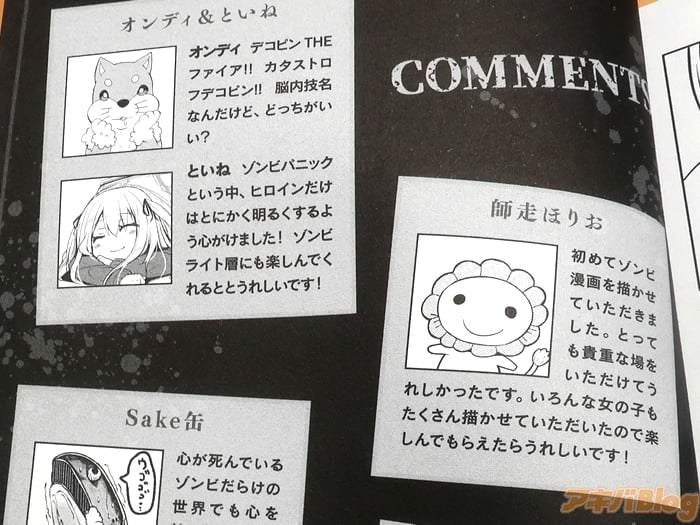 オンディ&といね
オンディ デコピンTHE
ファイア!! カタストロ
フデコピン!! 脳内技名
なんだけど、どっちがい
い?
といね ゾンビパニック
という中、ヒロインだけ
はとにかく明るくするよ
う心がけました! ゾンビ
ライト層にも楽しんでく
れるととうれしいです!
COMMENTS
師走ほりお
初めてゾンビ
漫画を描かせ
ていただきま
した。とって
も貴重な場を
いただけてう
れしかったです。いろんな女の子も
たくさん描かせていただいたので楽
しんでもらえたらうれしいです!
Sake缶
心が死んでいる
ゾンビだらけの
世界でも心を
アキバBlog